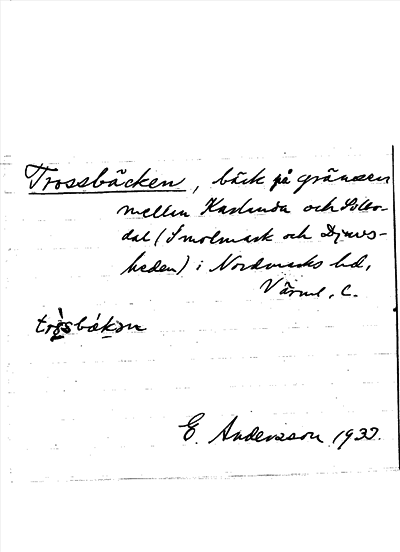 Trossbäcken, bäck på gränsen
mellan Karlanda och Sillbo-
dal (Smolmark och Djurs-
heden) i Nordmarks hd,
Värml. l.
E. Andersson 193